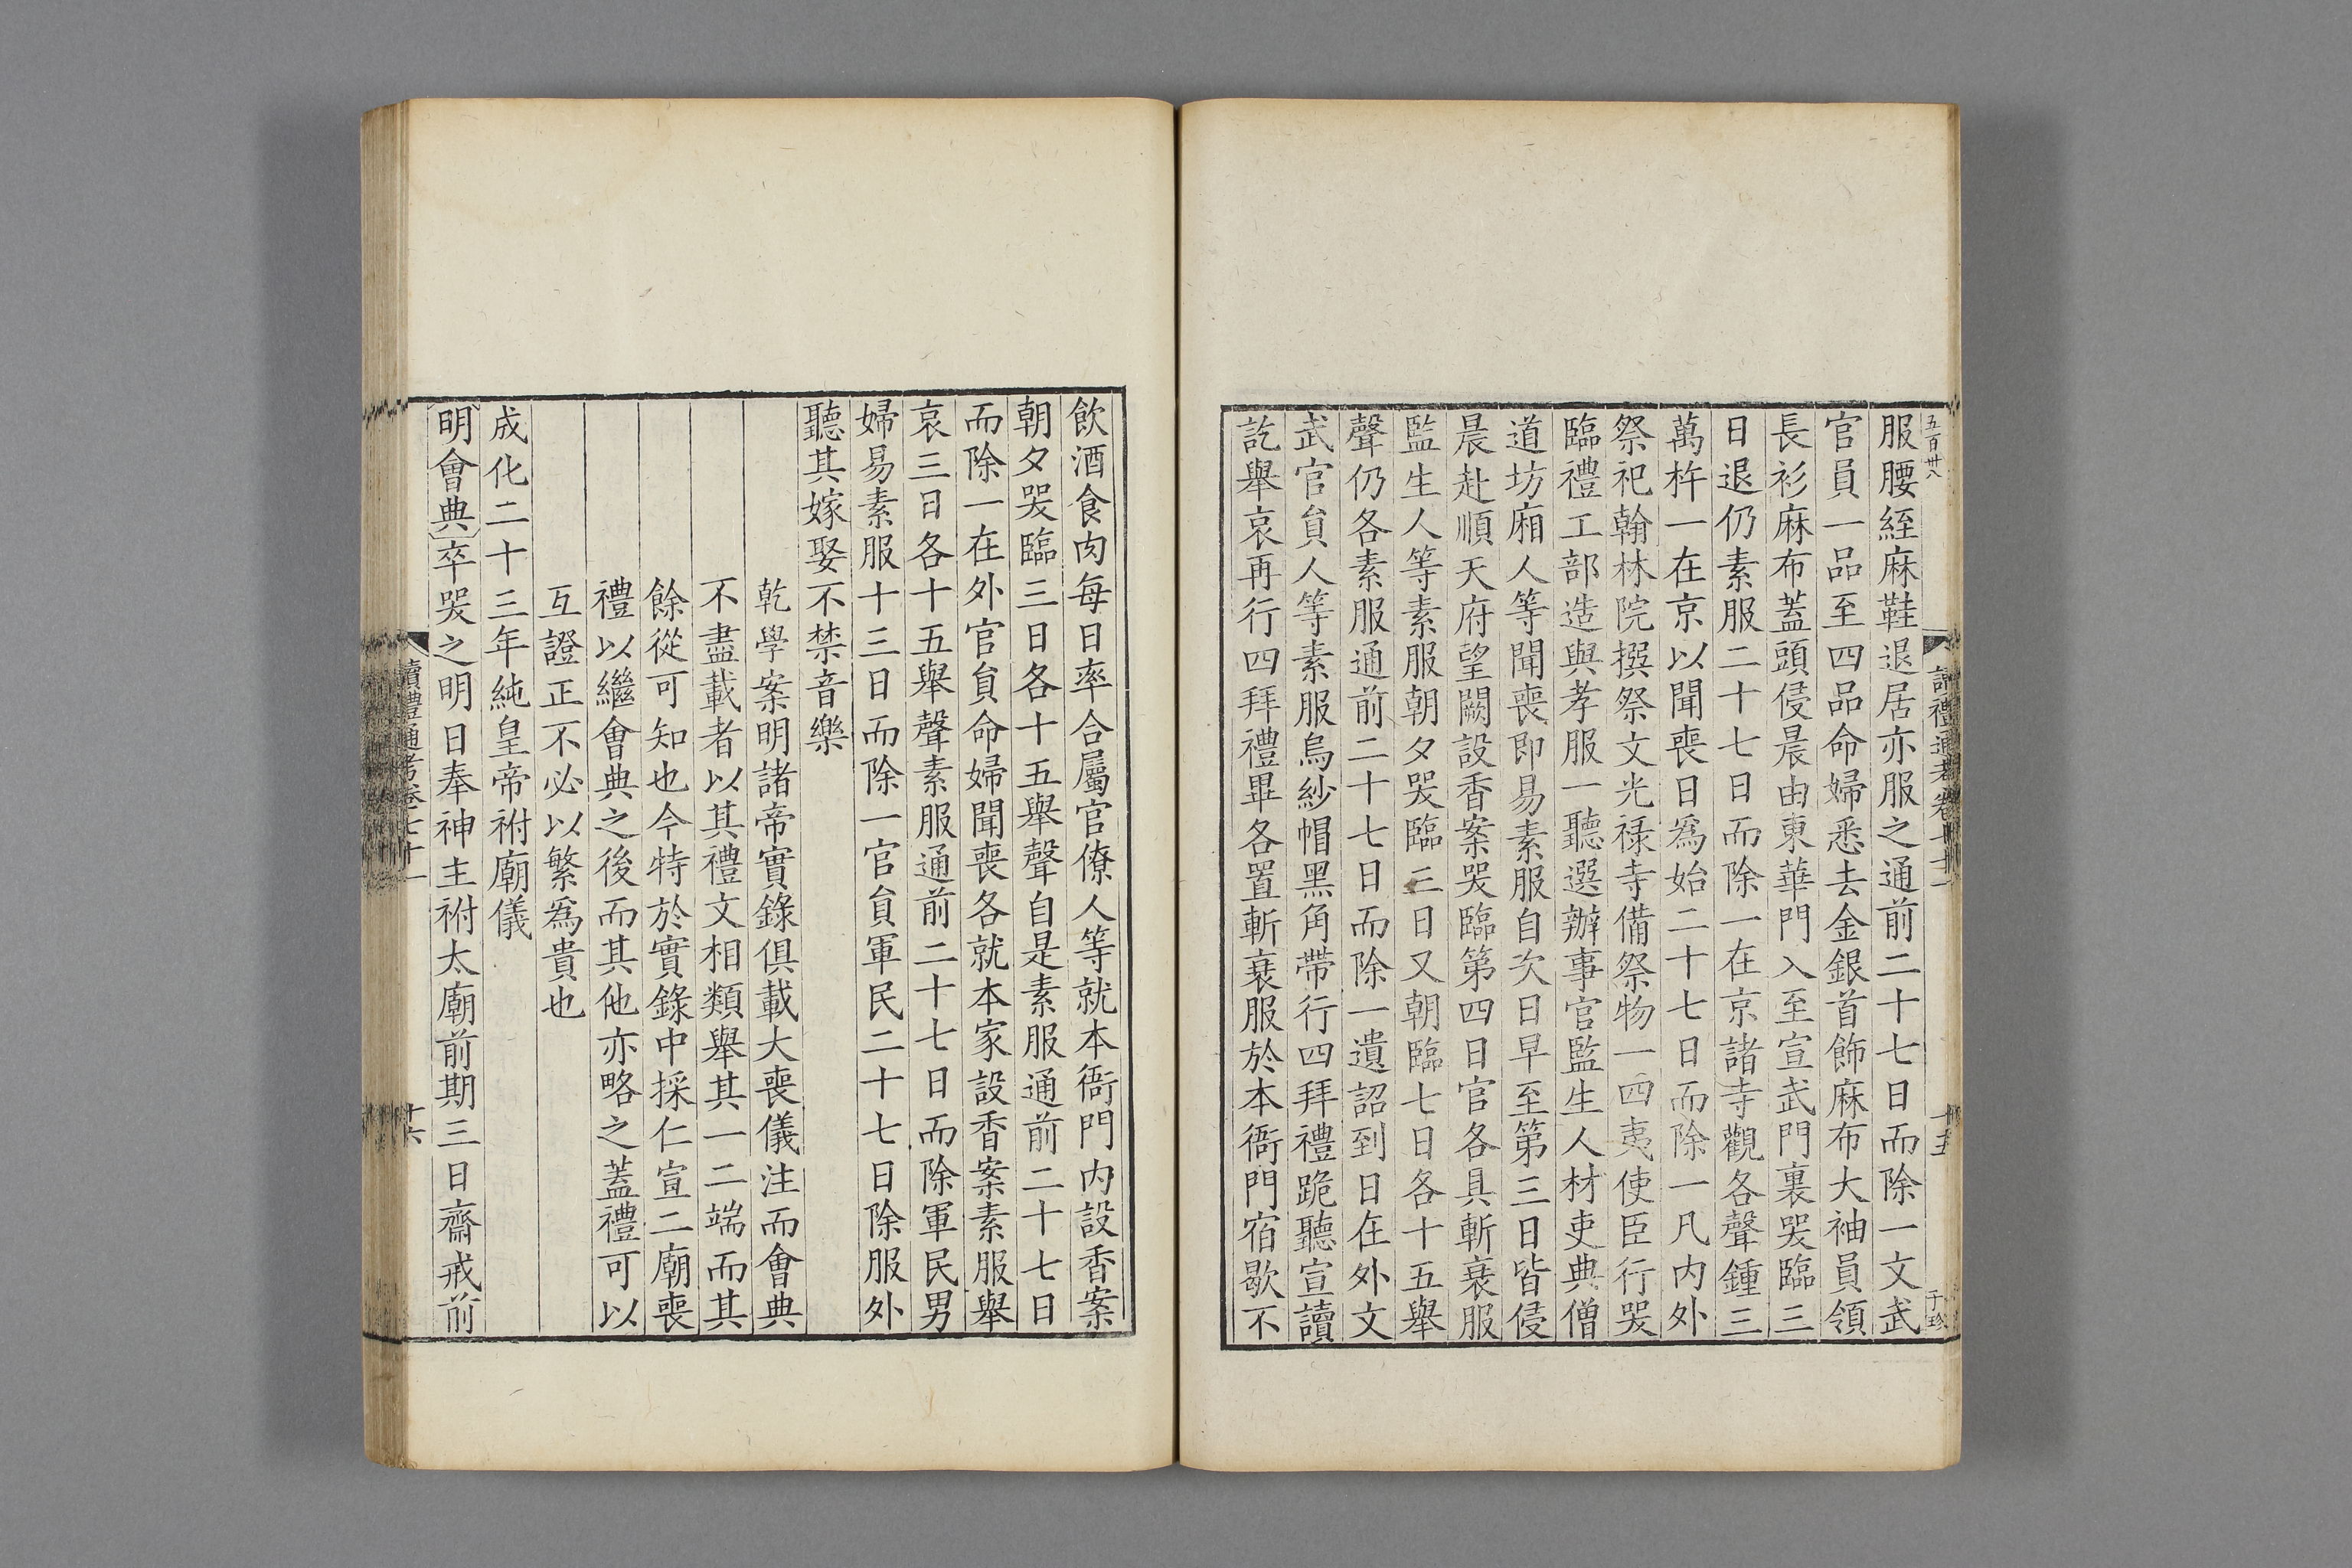 五百卅八
讀禮通考卷七十一
十五
于珍
服腰絰麻鞋退居亦服之通前二十七日而除一文武
官員一品至四品命婦悉去金銀首飾麻布大袖員領
長衫麻布蓋頭侵晨由東華門入至宣武門裏哭臨三
日退仍素服二十七日而除一在京諸寺觀各聲鍾三
萬杵一在京以聞喪日爲始二十七日而除一凡内外
祭祀翰林院撰祭文光祿寺備祭物一四夷使臣行哭
臨禮工部造與孝服一聽選辦事官監生人材吏典僧
道坊廂人等聞喪即易素服自次日早至第三日皆侵
晨赴順天府望闕設香案哭臨第四日官各具斬衰服
監生人等素服朝夕哭臨三日又朝臨七日各十五舉
聲仍各素服通前二十七日而除一遺詔到日在外文
武官貟人等素服烏紗帽黑角帶行四拜禮跪聽宣讀
訖舉哀再行四拜禮畢各置斬衰服於本衙門宿歇不
飲酒食肉每日率合屬官僚人等就本衙門内設香案
朝夕哭臨三日各十五舉聲自是素服通前二十七日
而除一在外官貟命婦聞喪各就本家設香案素服舉
哀三日各十五舉聲素服通前二十七日而除軍民男
婦易素服十三日而除一官貟軍民二十七日除服外
聽其嫁娶不禁音樂
乾學案明諸帝實錄俱載大喪儀注而會典
不盡載者以其禮文相類舉其一二端而其
餘從可知也今特於實錄中採仁宣二廟喪
禮以繼會典之後而其他亦略之蓋禮可以
互證正不必以繁爲貴也
成化二十三年純皇帝祔廟儀
明會典卒哭之明日奉神主祔太廟前期三日齋戒前
讀禮通考卷七十一
十六